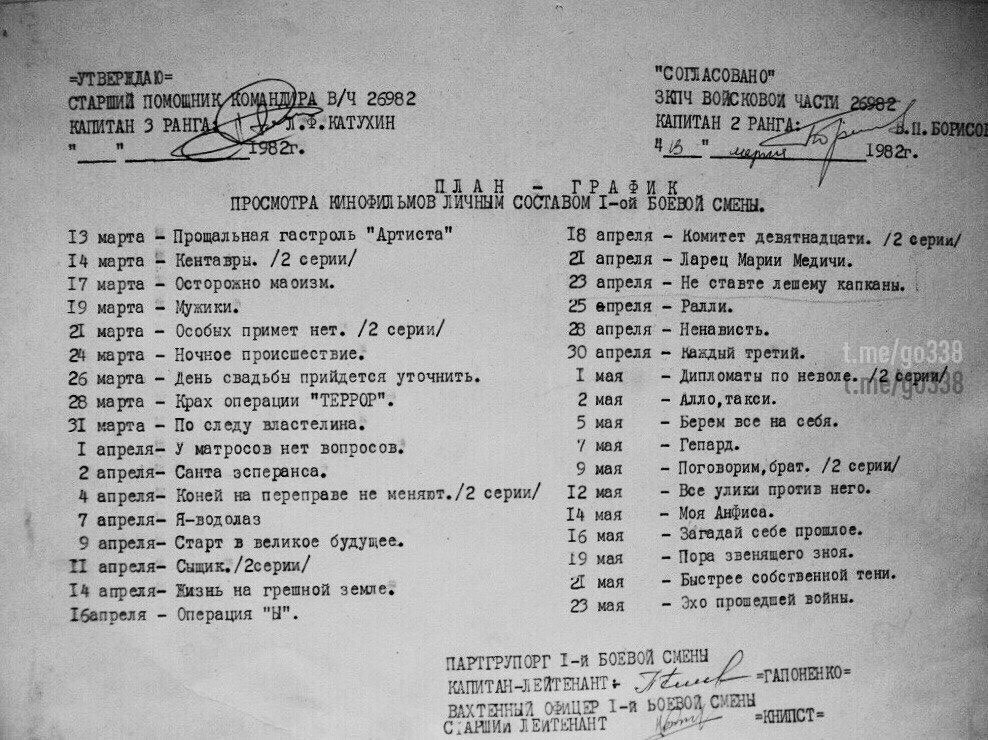 =УТВЕРЖДАЮ=
СТАРШИЙ ПОМОЩНИК КОМАНДИРА В/Ч 26982
КАПИТАН 3 РАНГА: Л.Ф.КАТУХИН
"___" ___________1982г.
"СОГЛАСОВАНО"
ЗКПЧ ВОЙСКОВОЙ ЧАСТИ 26982
КАПИТАН 2 РАНГА: В.П.БОРИСОВ
"13" марта 1982г.
П Л А Н - Г Р А Ф И К
ПРОСМОТРА КИНОФИЛЬМОВ ЛИЧНЫМ СОСТАВОМ I-ой БОЕВОЙ СМЕНЫ.
I3 марта - Прощальная гастроль "Артиста"
I4 марта - Кентавры. /2 серии/
I7 марта - Осторожно маоизм.
I9 марта - Мужики.
2I марта - Особых примет нет. /2 серии/
24 марта - Ночное происшествие.
26 марта - День свадьбы прийдется уточнить.
28 марта - Крах операции "ТЕРРОР".
3I марта - По следу властелина.
I апреля- У матросов нет вопросов.
2 апреля- Санта эсперанса.
4 апреля- Коней на переправе не меняют./2 серии/
7 апреля- Я-водолаз
9 апреля- Старт в великое будущее.
II апреля- Сыщик./2серии/
I4 апреля- Жизнь на грешной земле.
I6апреля - Операция "Ы".
I8 апреля - Комитет девятнадцати. /2 серии/
2I апреля - Ларец Марии Медичи.
23 апреля - Не ставте лешему капканы.
25 апреля - Ралли.
28 апреля - Ненависть.
30 апреля - Каждый третий.
I мая - Дипломаты по неволе. /2 серии/
2 мая - Алло,такси.
5 мая - Берем все на себя.
7 мая - Гепард.
9 мая - Поговорим,брат. /2 серии/
I2 мая - Все улики против него.
I4 мая - Моя Анфиса.
I6 мая - Загадай себе прошлое.
I9 мая - Пора звенящего зноя.
2I мая - Быстрее собственной тени.
23 мая - Эхо прошедшей войны.
t.me/go338
t.me/go338
ПАРТГРУПОРГ I-й БОЕВОЙ СМЕНЫ
КАПИТАН-ЛЕЙТЕНАНТ: =ГАПОНЕНКО=
ВАХТЕННЫЙ ОФИЦЕР I-й БОЕВОЙ СМЕНЫ
СТАРШИЙ ЛЕЙТЕНАНТ =КНИПСТ=